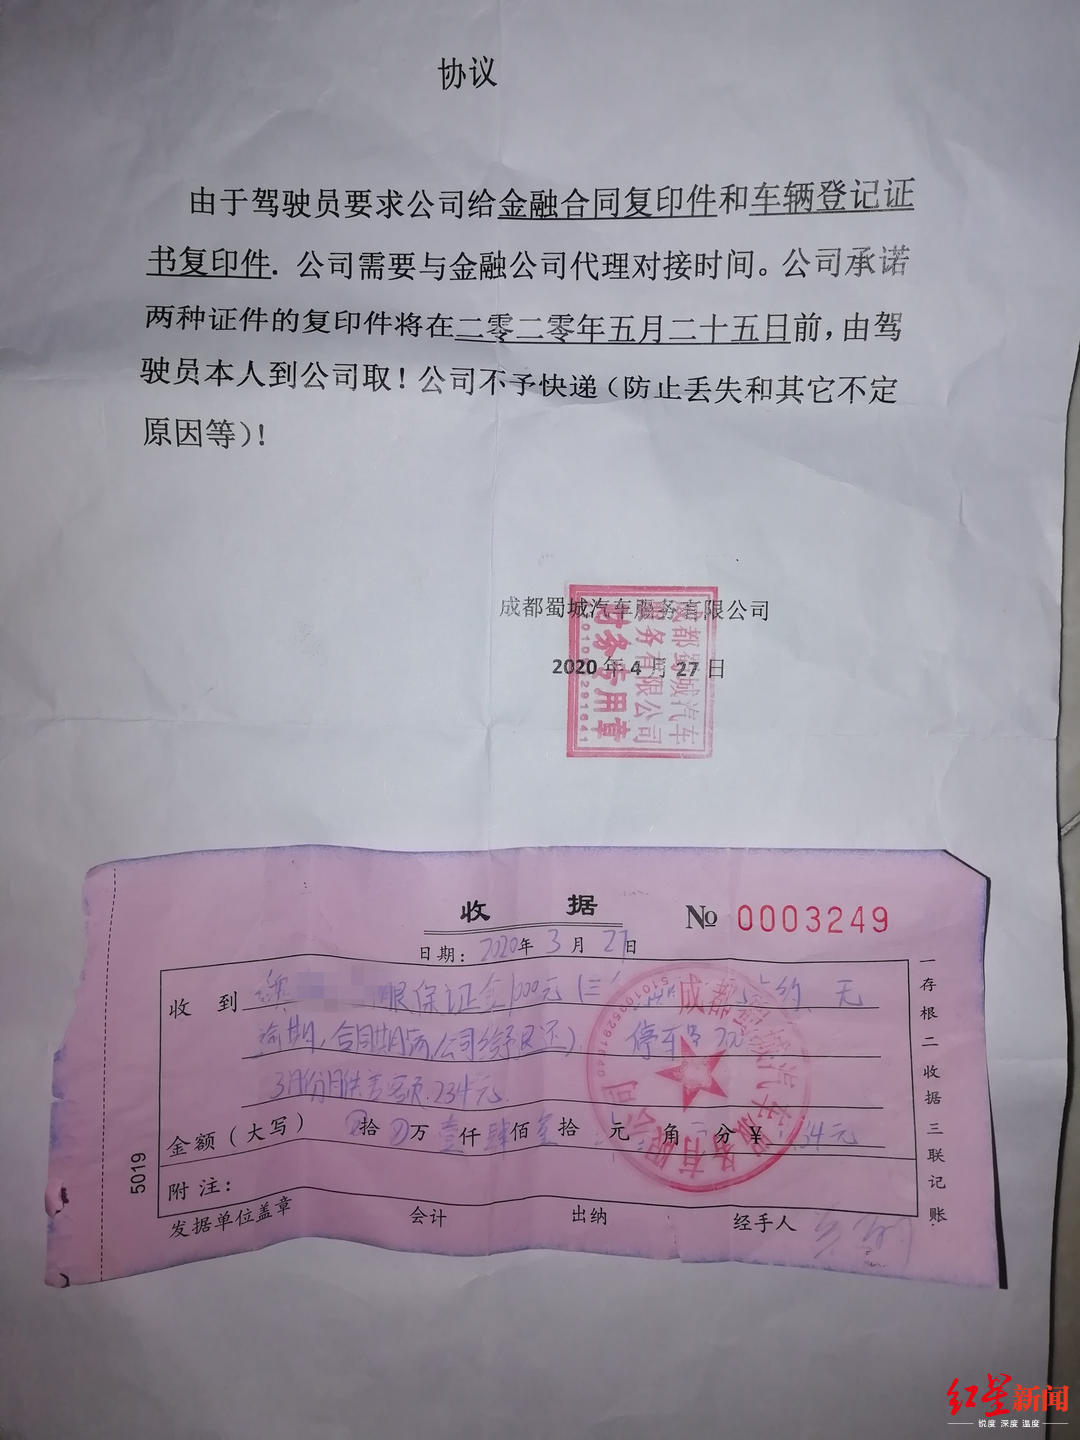 协议
由于驾驶员要求公司给金融合同复印件和车辆登记证
书复印件. 公司需要与金融公司代理对接时间。公司承诺
两种证件的复印件将在二零二零年五月二十五日前,由驾
驶员本人到公司取！公司不予快递(防止丢失和其它不定
原因等)！
成都蜀城汽车服务有限公司
2020 年 4 月 27 日
成都蜀城汽车
服务有限公司
财务专用章
收 据
№ 0003249
日期: 2020年 3 月 27日
收 到 保证金1000元 约 无
逾期, 合同期满公司给予退还) 停车
3月份月供差额.234元
金额(大写) 拾 万 壹仟 肆佰 拾 元 角 分 ¥ 34元
附注:
发据单位盖章 会计 出纳 经手人
一存根二收据三联记账
5019
红星新闻
锐度 深度 温度